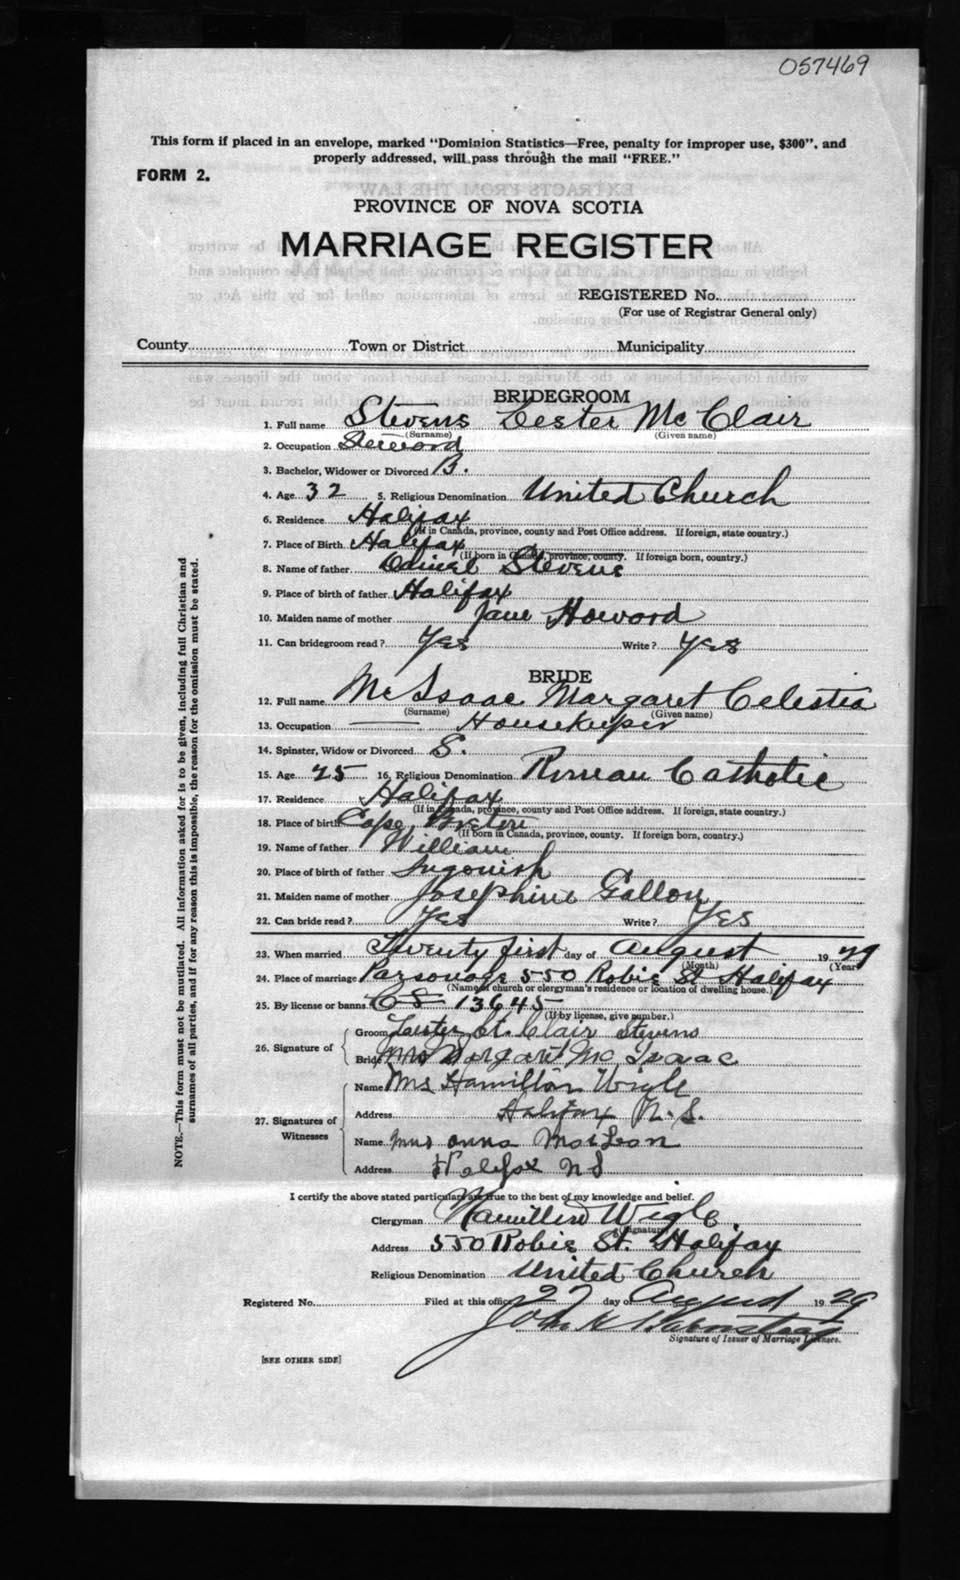 057469
This form if placed in an envelope, marked "Dominion Statistics—Free, penalty for improper use, $300", and
properly addressed, will pass through the mail "FREE."
FORM 2.
PROVINCE OF NOVA SCOTIA
MARRIAGE REGISTER
REGISTERED No.
(For use of Registrar General only)
County Town or District Municipality
BRIDEGROOM
1. Full name Stevens Lester Mc Clair
(Surname) (Given name)
2. Occupation
3. Bachelor, Widower or Divorced B.
4. Age 32 5. Religious Denomination United Church
6. Residence Halifax
(If in Canada, province, county and Post Office address. If foreign, state country.)
7. Place of Birth Halifax
(If born in Canada, province, county. If foreign born, country.)
8. Name of father Stevens
9. Place of birth of father Halifax
10. Maiden name of mother Jane Howard
11. Can bridegroom read? Yes Write? Yes
BRIDE
12. Full name McIsaac Margaret Celestia
(Surname) (Given name)
13. Occupation Housekeeper
14. Spinster, Widow or Divorced S.
15. Age 25 16. Religious Denomination Roman Catholic
17. Residence Halifax
(If in Canada, province, county and Post Office address. If foreign, state country.)
18. Place of birth Cape Breton
(If born in Canada, province, county. If foreign born, country.)
19. Name of father William
20. Place of birth of father Ingonish
21. Maiden name of mother Josephine Gallon
22. Can bride read? Yes Write? Yes
23. When married Twenty first day of August 1929
(Month) (Year)
24. Place of marriage Parsonage 550 Robie St Halifax
(Name of church or clergyman's residence or location of dwelling house.)
25. By license or banns 13645
(If by license, give number.)
26. Signature of
Groom Lester St. Clair Stevens
Bride Mrs Margaret Mc Isaac
27. Signatures of Witnesses
Name Mrs Hamilton Wigle
Address Halifax N. S.
Name Mrs Anna MacLean
Address Halifax N S
I certify the above stated particulars are true to the best of my knowledge and belief.
Clergyman Hamilton Wigle
(Signature)
Address 550 Robie St. Halifax
Religious Denomination United Church
Registered No. Filed at this office 27 day of August 1929
John H
Signature of Issuer of Marriage Licenses.
[SEE OTHER SIDE]
NOTE.—This form must not be mutilated. All information asked for is to be given, including full Christian and
surnames of all parties, and if for any reason this is impossible, the reason for the omission must be stated.